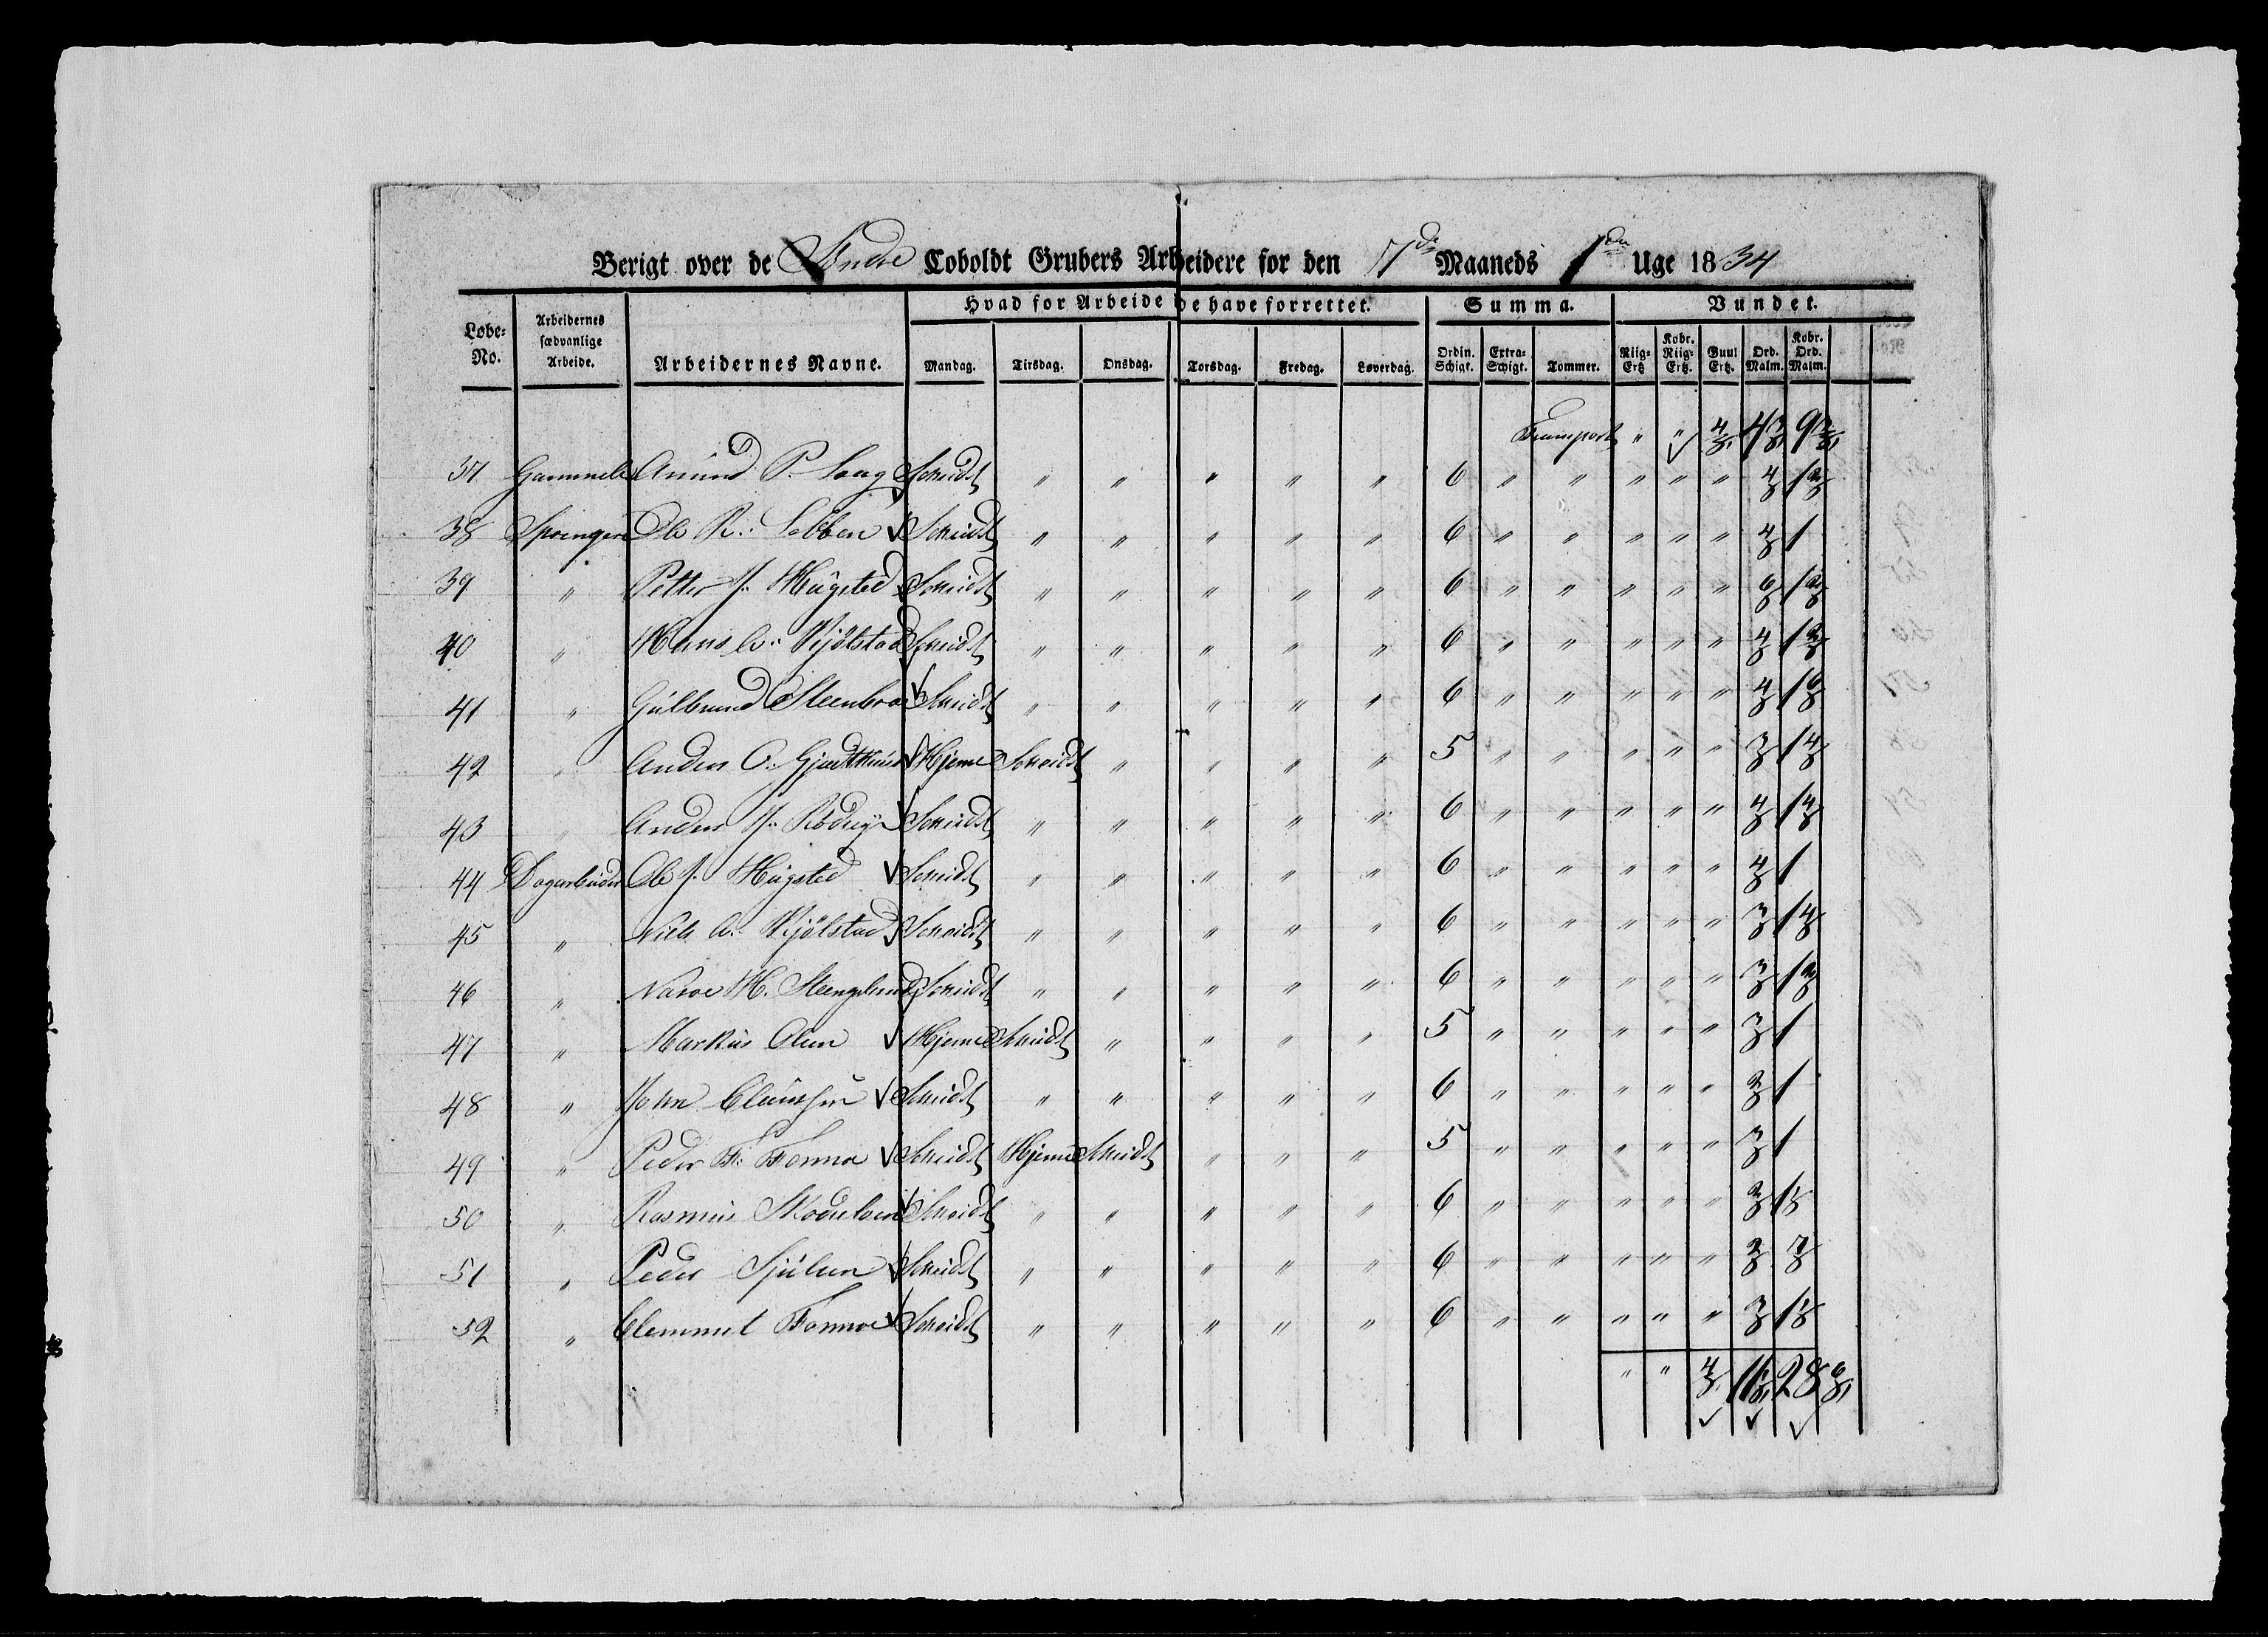 Berigt over de Søndre Coboldt Grubers Arbeidere for den 7de Maaneds 1ste Uge 1834
Løbe-No. Arbeidernes sædvanlige Arbeide. Arbeidernes Navne. Hvad for Arbeide de have forrettet. Summa. Vundet.
Mandag. Tirsdag. Onsdag. Torsdag. Fredag. Løverdag. Ordin. Schigt. Extra-Schigt. Tommer. Riig-Ertz Kobr. Riig-Ertz. Guul Ertz. Ord. Malm. Kobr. Ord. Malm.
Transport " " 4/8 4 3/8 9 3/8
37 Gammele Amund P. Saag Scheidt " " " " " 6 " " " " " 4/8 1 2/8
38 Sprengere Ole R. Sebben Scheidt " " " " " 6 " " " " " 4/8 1
39 " Petter J. Haugsted Scheidt " " " " " 6 " " " " " 6/8 1 2/8
40 " Hans A. Kjølstad Scheidt " " " " " 6 " " " " " 4/8 1 2/8
41 " Gulbrand Steenbroe Scheidt " " " " " 6 " " " " " 4/8 1 6/8
42 " Anders O. Hjeme Scheidt " " " " 5 " " " " " 3/8 1 4/8
43 " Anders Scheidt " " " " " 6 " " " " " 4/8 1 4/8
44 Dagarbeider Ole J. Haugsted Scheidt " " " " " 6 " " " " " 4/8 1
45 " Niels A. Kjølstad Scheidt " " " " " 6 " " " " " 3/8 1 4/8
46 " Narve H. Steenglund Scheidt " " " " " 6 " " " " " 3/8 1 2/8
47 " Markus Olsen Hjeme Scheidt " " " " 5 " " " " " 3/8 1
48 " John Clausen Scheidt " " " " " 6 " " " " " 3/8 1
49 " Peder F. Fonnoe Scheidt Hjeme Scheidt " " " 5 " " " " " 3/8 1
50 " Rasmus Skodelven Scheidt " " " " " 6 " " " " " 3/8 1 1/8
51 " Peder Scheidt " " " " " 6 " " " " " 3/8 7/8
52 " Clemmet Fonnoe Scheidt " " " " " 6 " " " " " 3/8 1 1/8
" " 4/8 11 1/8 28 6/8